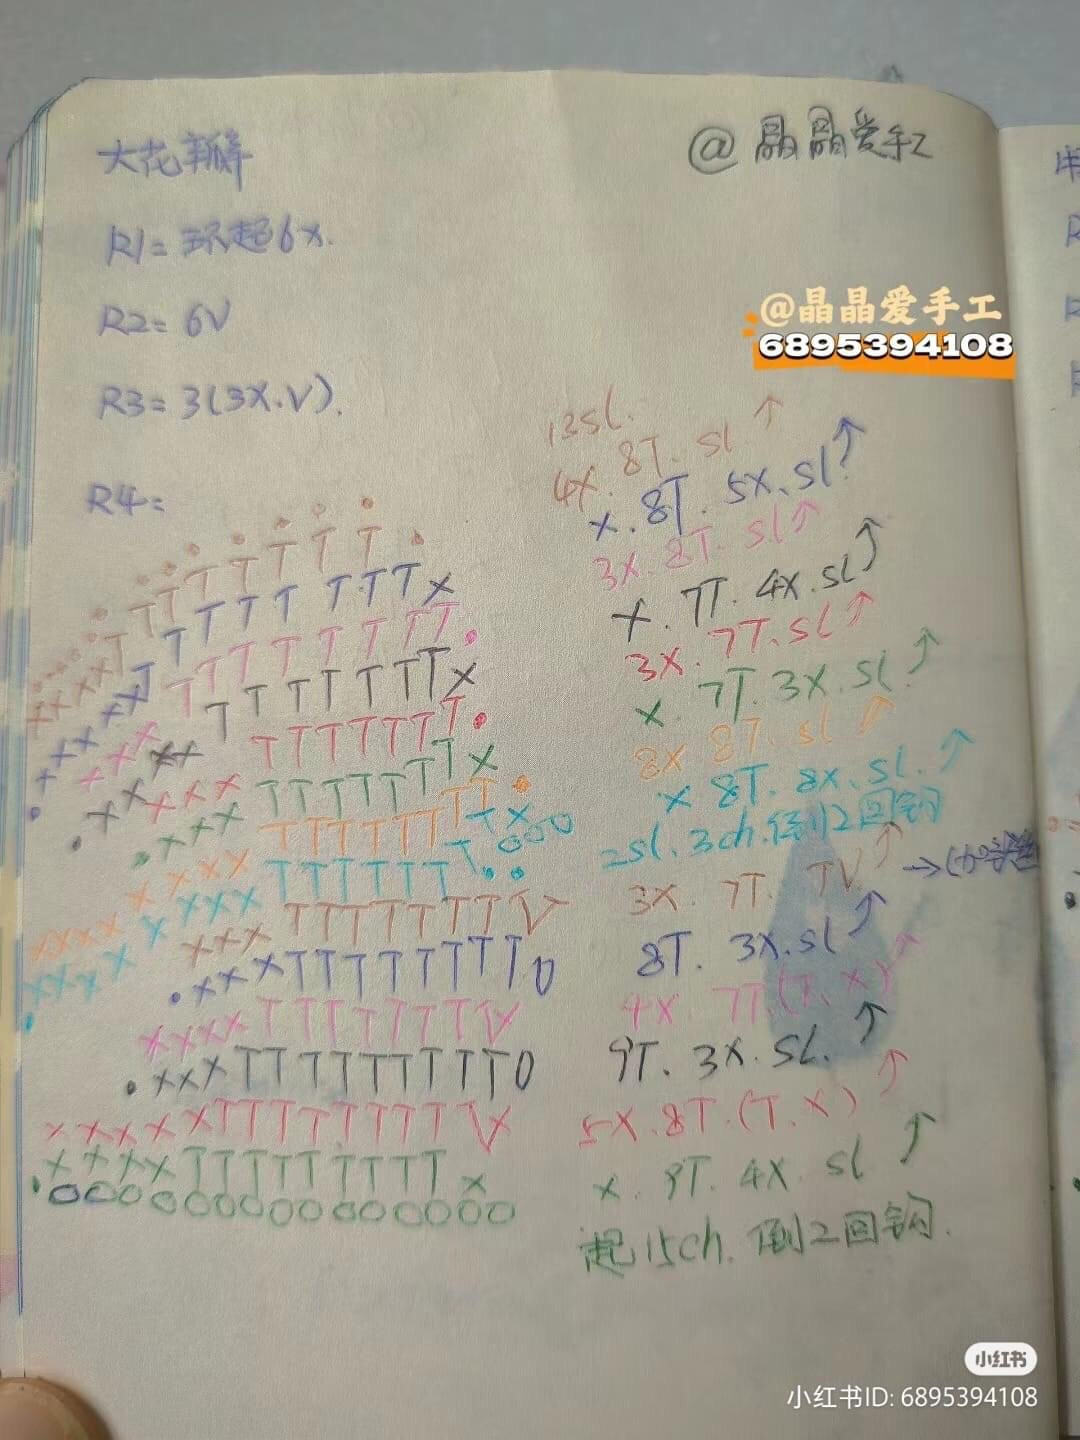 大花瓣
@晶晶爱手工
R1=环起6x.
R2=6V
@晶晶爱手工
6895394108
R3=3(3X.V).
R4=
12sl.
4X.8T.sl↑
x.8T.5X.sl↑
3X.8T.sl↑
X.7T.4X.sl↑
3X.7T.sl↑
x.7T.3X.sl↑
8X 8T.sl↑
x 8T.8X.sl.↑
=sl.3ch.倒2回钩
3X.7T.TV↑
8T.3X.sl↑
4X.7T.(T.X)↑
9T.3X.SL.↑
5X.8T.(T.X)↑
x.9T.4X.sl↑
起15ch.倒2回钩.
小红书
小红书ID: 6895394108